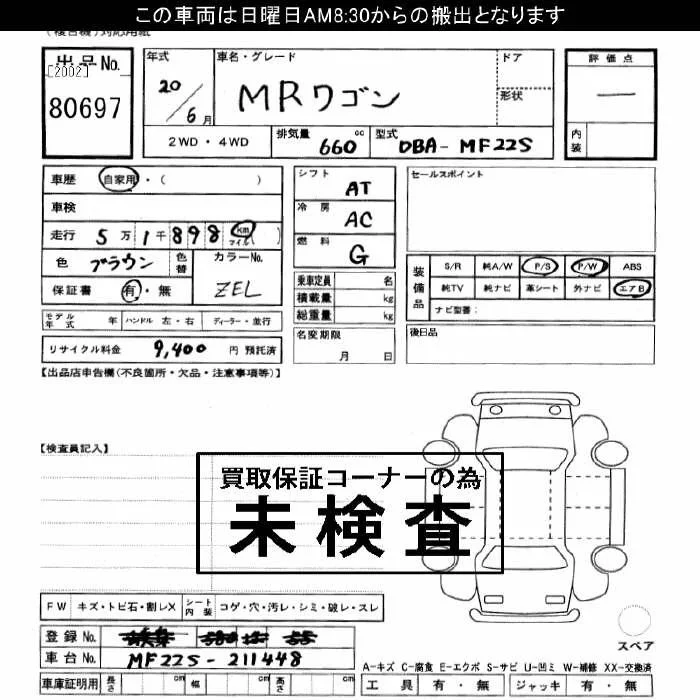 この車両は日曜日AM8:30からの搬出となります
(複合機)対応用紙
出品No.
[2002]
80697
年式
20/6月
車名・グレード
MRワゴン
ドア
形状
評価点
―
内装
2WD・4WD
排気量 660 cc
型式 DBA-MF22S
車歴 自家用・( )
車検
走行 5万1千898 km マイル( )
色 ブラウン 色替
カラーNo. ZEL
保証書 有・無
モデル年式 年 ハンドル 左・右 ディーラー・並行
リサイクル料金 9,400 円 預託済
シフト AT
冷房 AC
燃料 G
乗車定員 名
積載量 kg
総重量 kg
名変期限
月 日
セールスポイント
装備品
S/R 純A/W P/S P/W ABS
純TV 純ナビ 革シート 外ナビ エアB
ナビ型番:
後日品
【出品店申告欄(不良箇所・欠品・注意事項等)】
【検査員記入】
買取保証コーナーの為
未検査
FW キズ・トビ石・割レX シート内装 コゲ・穴・汚レ・シミ・破レ・スレ
登録No.
車台No. MF22S-211448
車庫証明用 長さ cm 幅 cm 高さ cm
スペア
A-キズ C-腐食 E-エクボ S-サビ U-凹ミ W-補修 XX-交換済
工具 有・無 ジャッキ 有・無